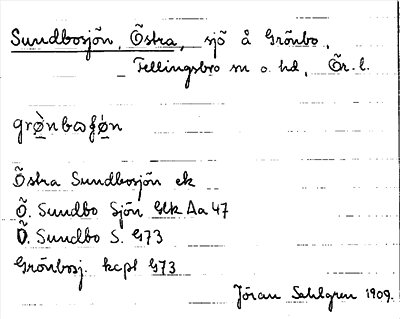 Sundbosjön, Östra, sjö å Grönbo,
Fellingsbro sn o. hd, Ör. l.
grø̀nbωʃø̀n
Östra Sundbosjön ek
Ö. Sundbo Sjön Glk Aa 47
Ö. Sundbo S. G73
Grönbosj. kcpl G73
Jöran Sahlgren 1909.